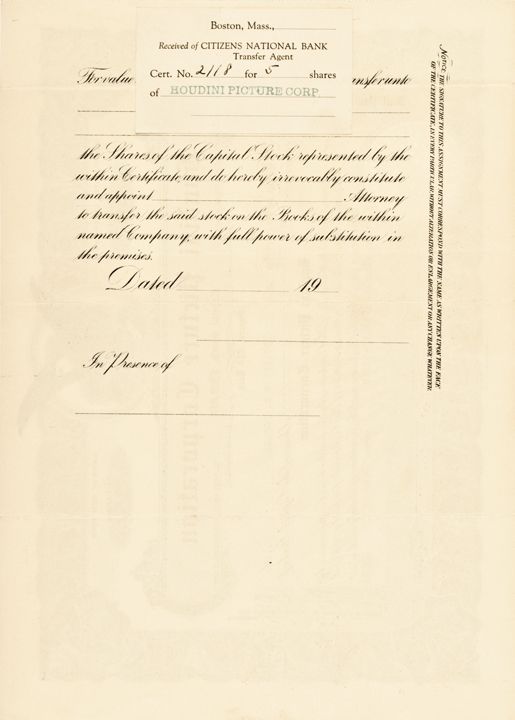 Boston, Mass.,
Received of CITIZENS NATIONAL BANK
Transfer Agent
Cert. No. 2118 for 5 shares
of HOUDINI PICTURE CORP.
For value ansfer unto
the Shares of the Capital Stock represented by the
within Certificate, and do hereby irrevocably constitute
and appoint Attorney
to transfer the said stock on the Books of the within
named Company, with full power of substitution in
the premises.
Dated 19
In Presence of
Notice. THE SIGNATURE TO THIS ASSIGNMENT MUST CORRESPOND WITH THE NAME AS WRITTEN UPON THE FACE
OF THE CERTIFICATE, IN EVERY PARTICULAR WITHOUT ALTERATION OR ENLARGEMENT OR ANY CHANGE WHATEVER.